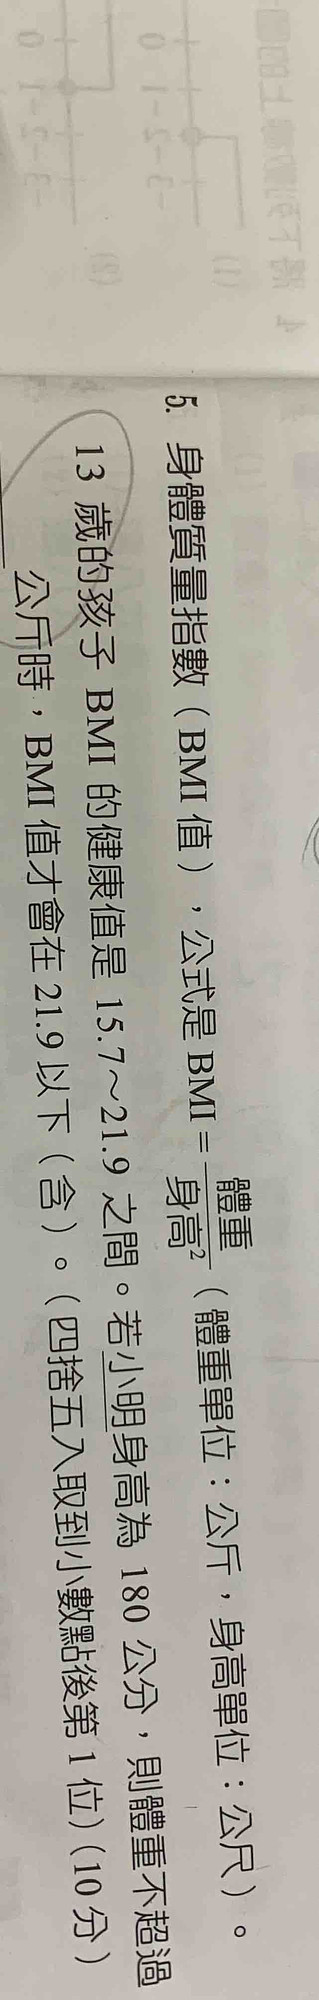 5. 身體質量指數（BMI 值），公式是 BMI = 體重/身高²（體重單位：公斤，身高單位：公尺）。
13 歲的孩子 BMI 的健康值是 15.7～21.9 之間。若小明身高為 180 公分，則體重不超過
公斤時，BMI 值才會在 21.9 以下（含）。（四捨五入取到小數點後第 1 位）（10 分）